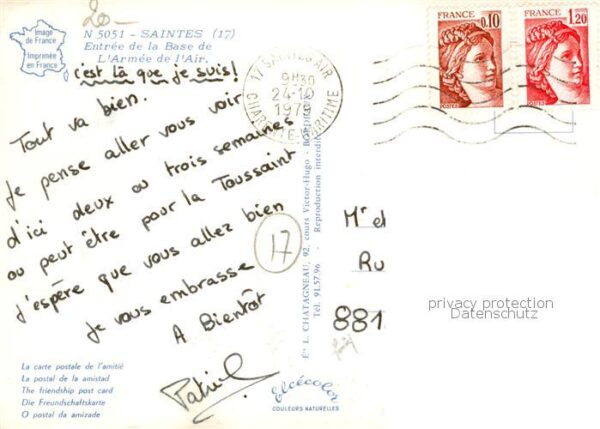 20-
Image
de France
Imprimée
en France
N 5051 - SAINTES (17)
Entrée de la Base de
L'Armée de l'Air.
c'est là que je suis!
Tout va bien.
Je pense aller vous voir
d'ici deux ou trois semaines
ou peut être pour la Toussaint
J'espère que vous allez bien
je vous embrasse
A Bientôt
Patrick
17
La carte postale de l'amitié
La postal de la amistad
The friendship post card
Die Freundschaftskarte
O postal da amizade
Elcécolor
COULEURS NATURELLES
Ets L. CHATAGNEAU, 92, cours Victor-Hugo - BORDEAUX
Tél. 91.57.96 - Reproduction interdite
17 SAINTES AIR
9H30
24-10
1979
CHARENTE-MARITIME
FRANCE
0,10
POSTES
FRANCE
1,20
POSTES
Mr et
Ru
881
privacy protection
Datenschutz